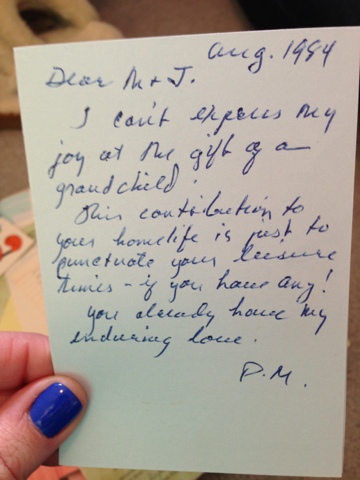 Aug. 1984
Dear M + J.
I can't express my
joy at the gift of a
grandchild!
This contribution to
your homelife is just to
punctuate your leisure
times - if you have any!
You already have my
enduring love.
P.M.